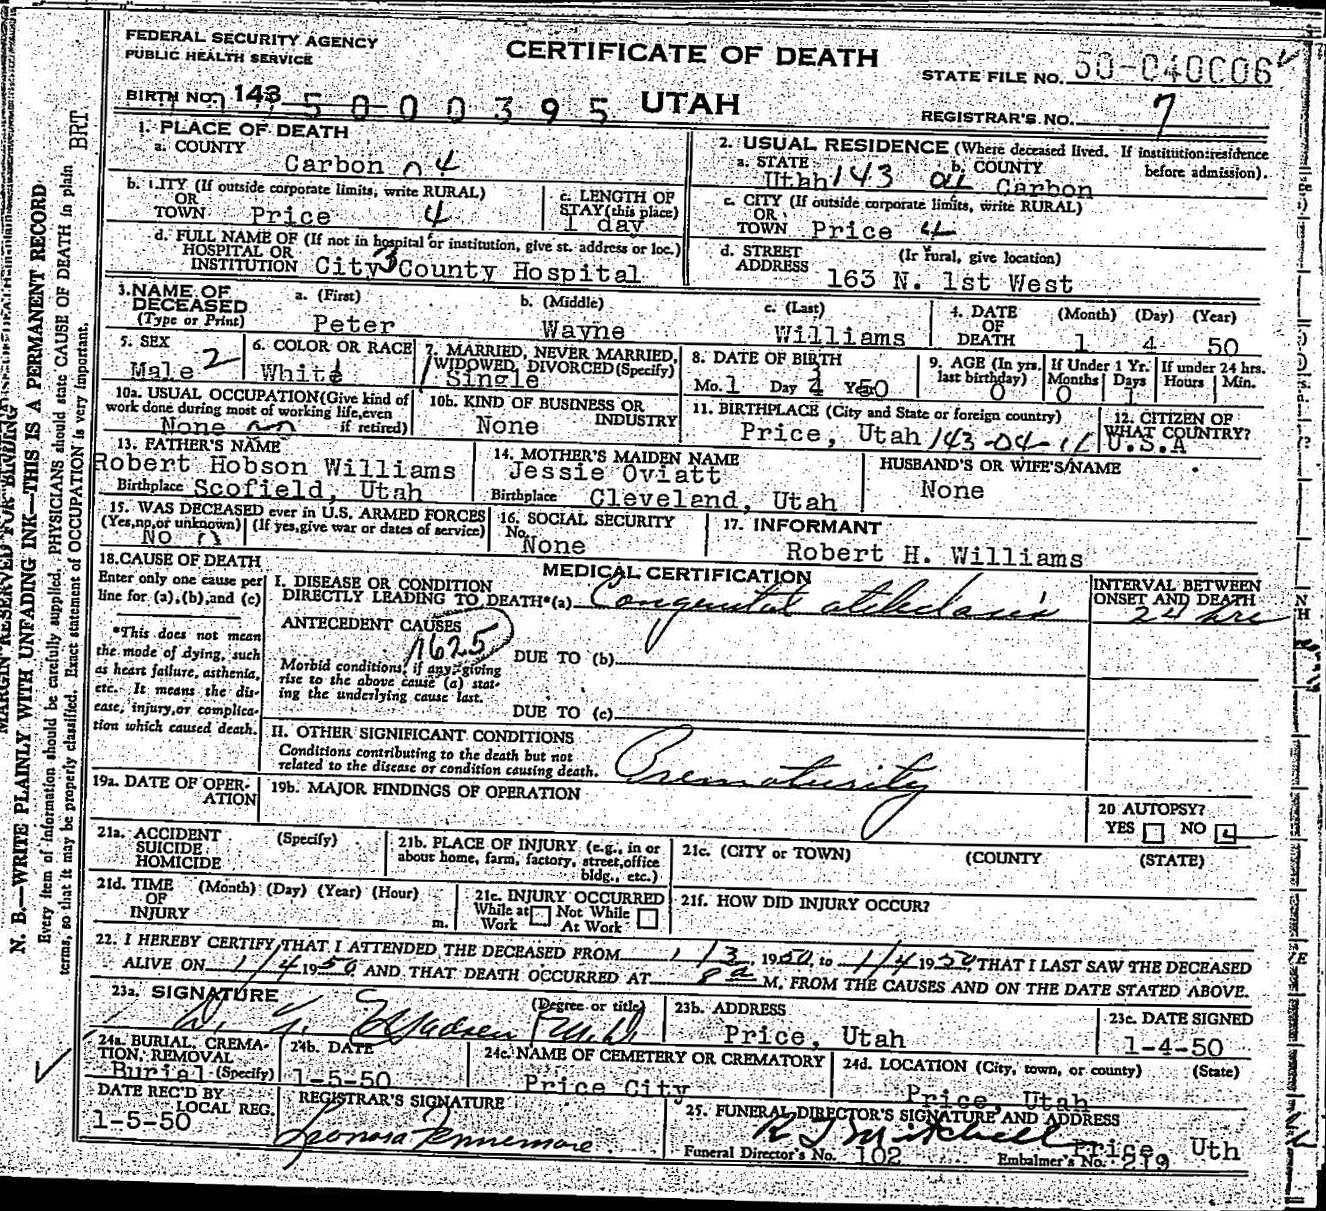 FEDERAL SECURITY AGENCY
PUBLIC HEALTH SERVICE
CERTIFICATE OF DEATH
STATE FILE NO. 50-040006
BIRTH NO. 143 5 0 0 0 3 9 5
UTAH
REGISTRAR'S NO. 7
1. PLACE OF DEATH
a. COUNTY
Carbon 04
2. USUAL RESIDENCE (Where deceased lived. If institution: residence before admission).
a. STATE Utah 143
b. COUNTY Carbon
b. CITY (If outside corporate limits, write RURAL)
OR
TOWN Price 4
c. LENGTH OF STAY (this place)
1 day
c. CITY (If outside corporate limits, write RURAL)
OR
TOWN Price 4
d. FULL NAME OF (If not in hospital or institution, give st. address or loc.)
HOSPITAL OR
INSTITUTION City 3 County Hospital
d. STREET ADDRESS
(If rural, give location)
163 N. 1st West
3. NAME OF DECEASED
(Type or Print)
a. (First)
Peter
b. (Middle)
Wayne
c. (Last)
Williams
4. DATE OF DEATH
(Month) (Day) (Year)
1 4 50
5. SEX
Male 2
6. COLOR OR RACE
White
7. MARRIED, NEVER MARRIED, WIDOWED, DIVORCED (Specify)
Single
8. DATE OF BIRTH
Mo. 1 Day 3 Yr 50
9. AGE (In yrs. last birthday)
0
If Under 1 Yr.
Months Days
0 1
If under 24 hrs.
Hours Min.
10a. USUAL OCCUPATION (Give kind of work done during most of working life, even if retired)
None
10b. KIND OF BUSINESS OR INDUSTRY
None
11. BIRTHPLACE (City and State or foreign country)
Price, Utah 143-04-
12. CITIZEN OF WHAT COUNTRY?
U.S.A
13. FATHER'S NAME
Robert Hobson Williams
Birthplace Scofield, Utah
14. MOTHER'S MAIDEN NAME
Jessie Oviatt
Birthplace Cleveland, Utah
HUSBAND'S OR WIFE'S NAME
None
15. WAS DECEASED ever in U.S. ARMED FORCES
(Yes, no, or unknown) (If yes, give war or dates of service)
No
16. SOCIAL SECURITY No.
None
17. INFORMANT
Robert H. Williams
18. CAUSE OF DEATH
Enter only one cause per line for (a), (b), and (c)
*This does not mean the mode of dying, such as heart failure, asthenia, etc. It means the disease, injury, or complication which caused death.
MEDICAL CERTIFICATION
I. DISEASE OR CONDITION
DIRECTLY LEADING TO DEATH*(a) Congenital atelectasis
INTERVAL BETWEEN ONSET AND DEATH
24 hrs
ANTECEDENT CAUSES
7625
Morbid conditions, if any, giving rise to the above cause (a) stating the underlying cause last.
DUE TO (b)
DUE TO (c)
II. OTHER SIGNIFICANT CONDITIONS
Conditions contributing to the death but not related to the disease or condition causing death.
Prematurity
19a. DATE OF OPERATION
19b. MAJOR FINDINGS OF OPERATION
20 AUTOPSY?
YES NO
21a. ACCIDENT
SUICIDE
HOMICIDE
(Specify)
21b. PLACE OF INJURY (e.g., in or about home, farm, factory, street, office bldg., etc.)
21c. (CITY or TOWN) (COUNTY (STATE)
21d. TIME OF INJURY
(Month) (Day) (Year) (Hour)
m.
21e. INJURY OCCURRED
While at Work Not While At Work
21f. HOW DID INJURY OCCUR?
22. I HEREBY CERTIFY THAT I ATTENDED THE DECEASED FROM 1/3, 1950, to 1/4 1950, THAT I LAST SAW THE DECEASED
ALIVE ON 1/4 1950 AND THAT DEATH OCCURRED AT 8 a M, FROM THE CAUSES AND ON THE DATE STATED ABOVE.
23a. SIGNATURE
(Degree or title)
M.D.
23b. ADDRESS
Price, Utah
23c. DATE SIGNED
1-4-50
24a. BURIAL, CREMATION, REMOVAL (Specify)
Burial
24b. DATE
1-5-50
24c. NAME OF CEMETERY OR CREMATORY
Price City
24d. LOCATION (City, town, or county) (State)
Price, Utah
DATE REC'D BY LOCAL REG.
1-5-50
REGISTRAR'S SIGNATURE
25. FUNERAL DIRECTOR'S SIGNATURE AND ADDRESS
R J Mitchell Price, Uth
Funeral Director's No. 102 Embalmer's No. 219
MARGIN RESERVED FOR BINDING
N. B.—WRITE PLAINLY WITH UNFADING INK—THIS IS A PERMANENT RECORD.
Every item of information should be carefully supplied. PHYSICIANS should state CAUSE OF DEATH in plain
terms, so that it may be properly classified. Exact statement of OCCUPATION is very important.
BRT